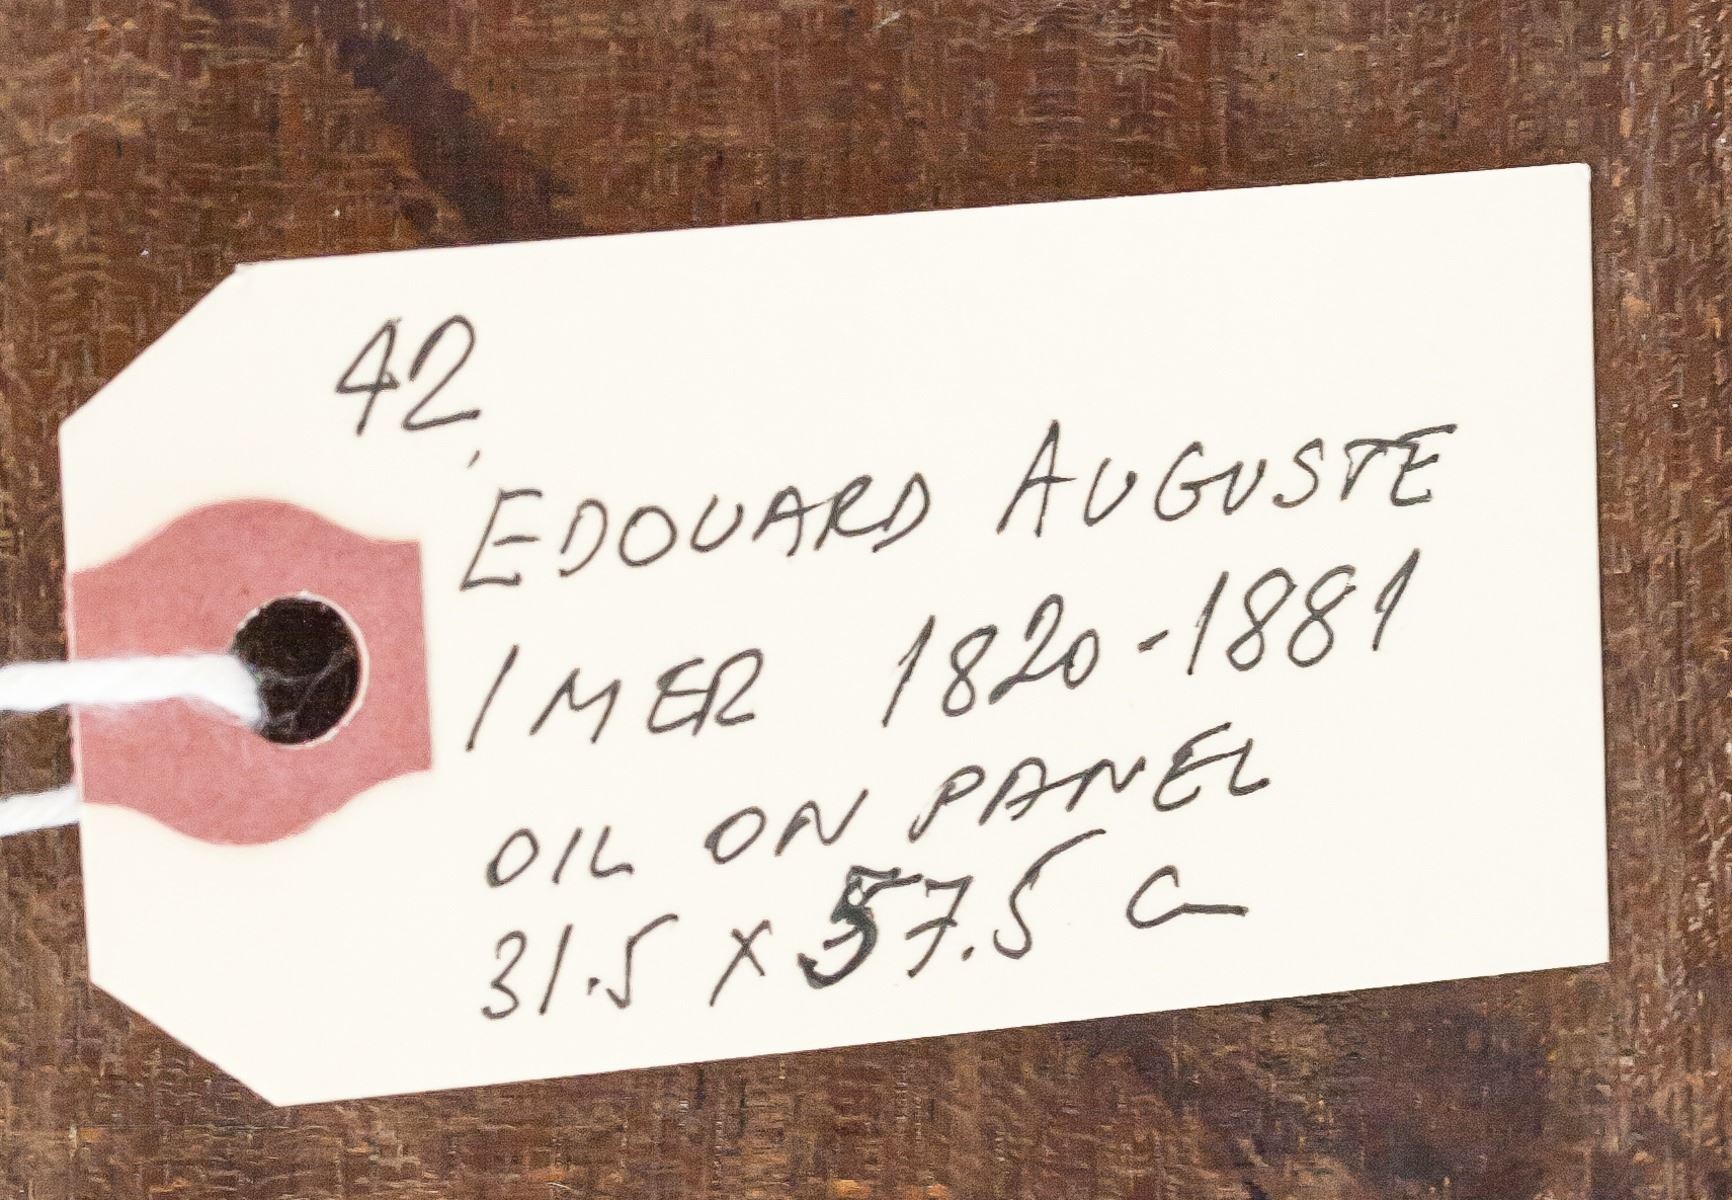 42
EDOUARD AUGUSTE
IMER 1820-1881
OIL ON PANEL
31.5 X 57.5 cm